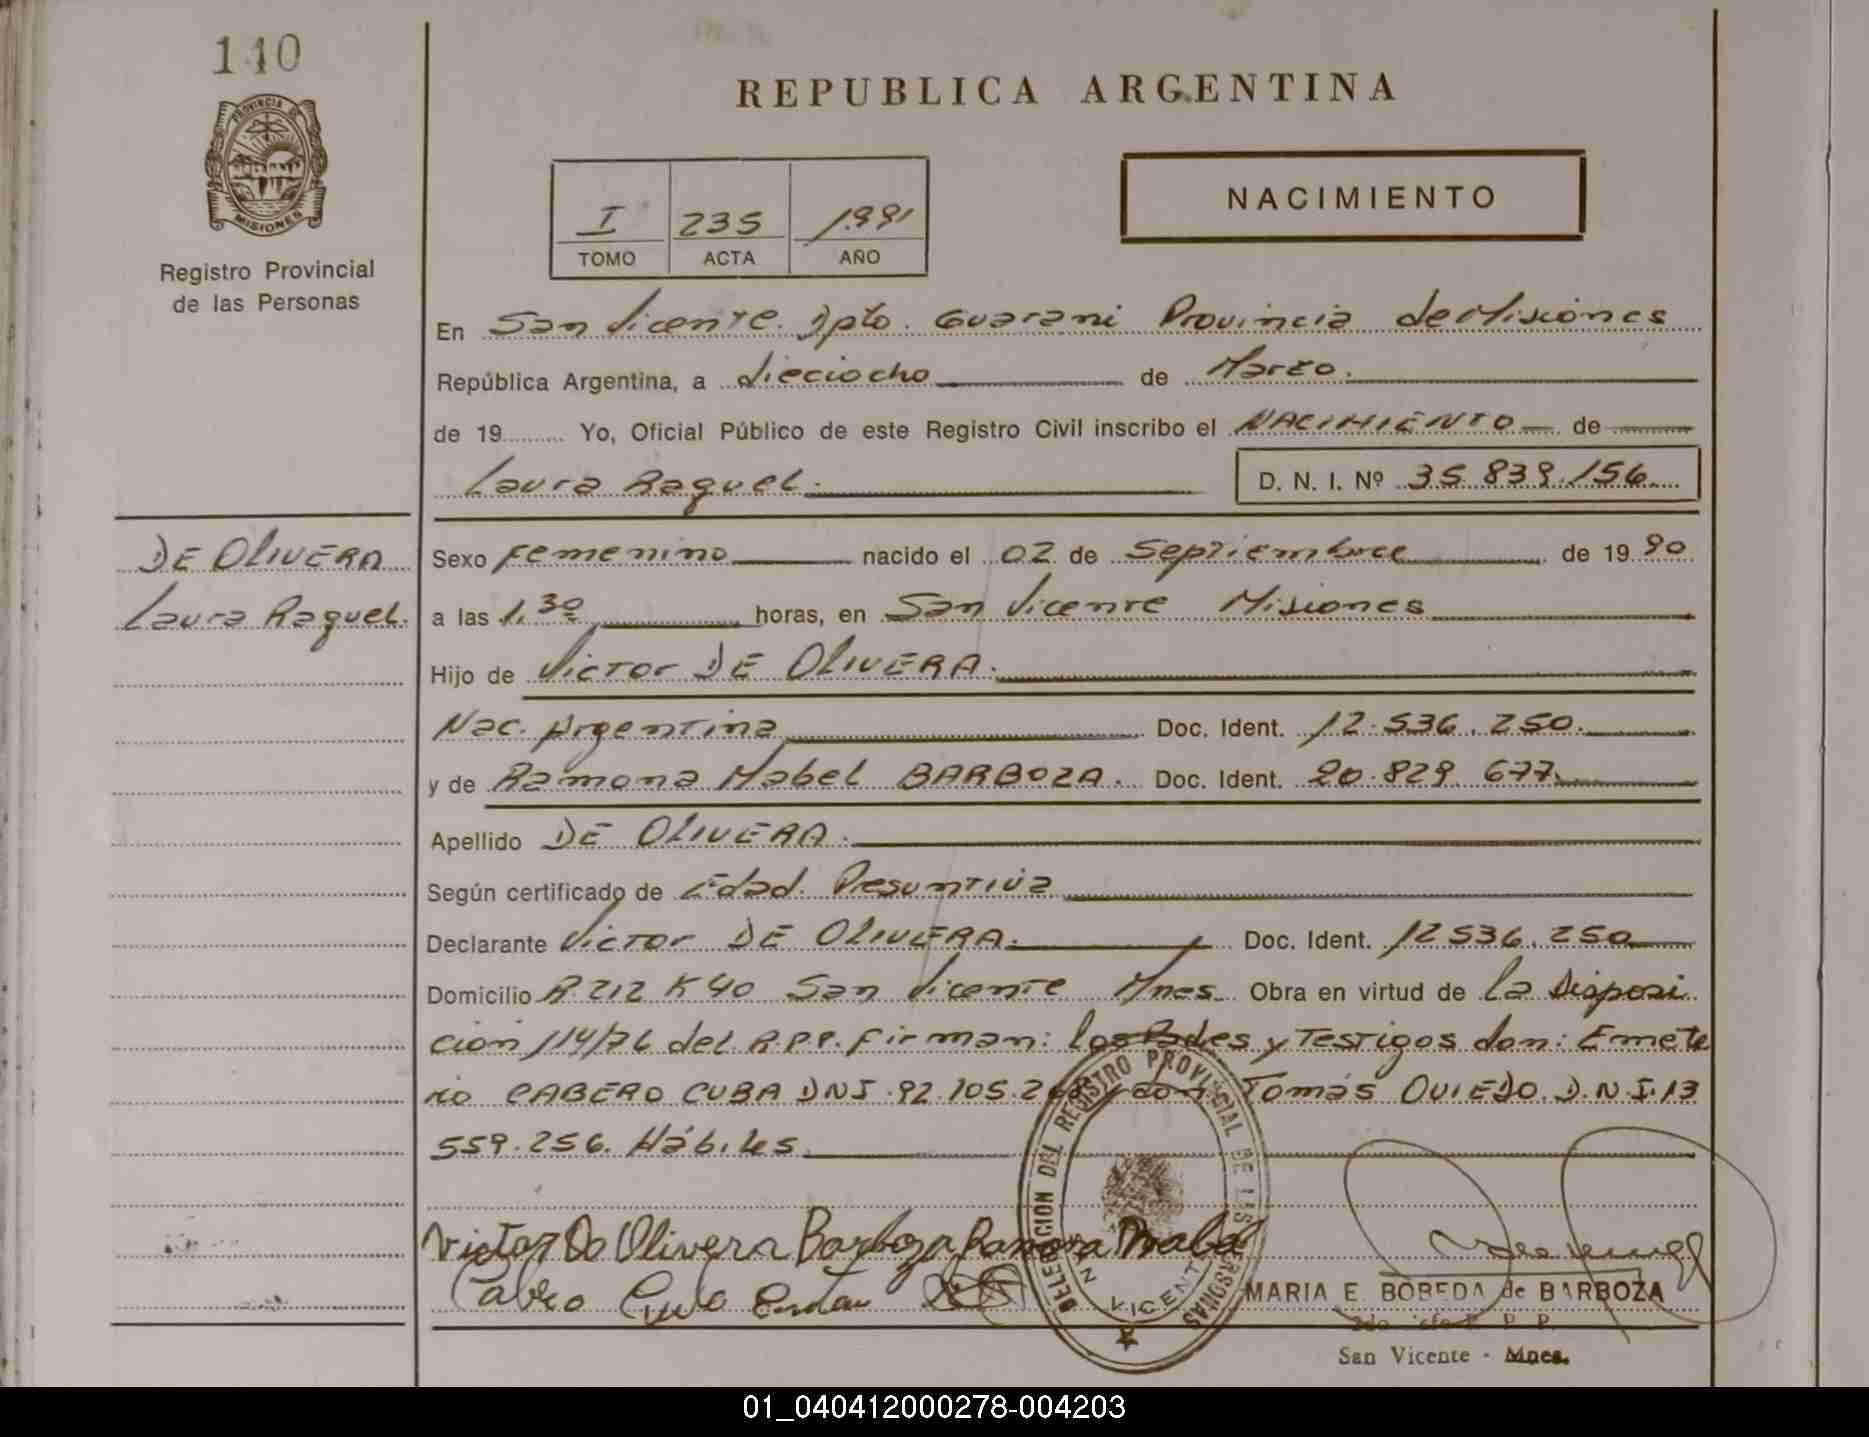 110
PROVINCIA DE
MISIONES
Registro Provincial
de las Personas
REPUBLICA ARGENTINA
NACIMIENTO
I 235 1991
TOMO ACTA AÑO
En San Vicente. Dpto. Guarani Provincia de Misiones
República Argentina, a dieciocho de Marzo.
de 19 Yo, Oficial Público de este Registro Civil inscribo el NACIMIENTO de
Laura Raquel. D. N. I. Nº 35.839.156
DE OLIVERA
Laura Raquel.
Sexo femenino nacido el 02 de Septiembre de 19 90
a las 1,30 horas, en San Vicente Misiones
Hijo de Victor DE OLIVERA.
Nac. Argentina Doc. Ident. 12.536.250.
y de Ramona Mabel BARBOZA. Doc. Ident. 20.829.677.
Apellido DE OLIVERA.
Según certificado de Edad Presuntiva
Declarante Victor DE OLIVERA. Doc. Ident. 12.536.250
Domicilio R.212 K40 San Vicente Mnes. Obra en virtud de la Disposi
cion 114/76 del R.P.P. firman: los Padres y Testigos don: Emete
rio CABERO CUBA DNI.92.105.2 y don Tomás OVIEDO. D.N.I.13
559.256. Hábiles
DELEGACION DEL REGISTRO PROVINCIAL DE LAS PERSONAS
SAN VICENTE
Victor De Olivera Barboza Ramona Mabel
MARIA E. BOBEDA de BARBOZA
San Vicente - Mnes.
01_040412000278-004203